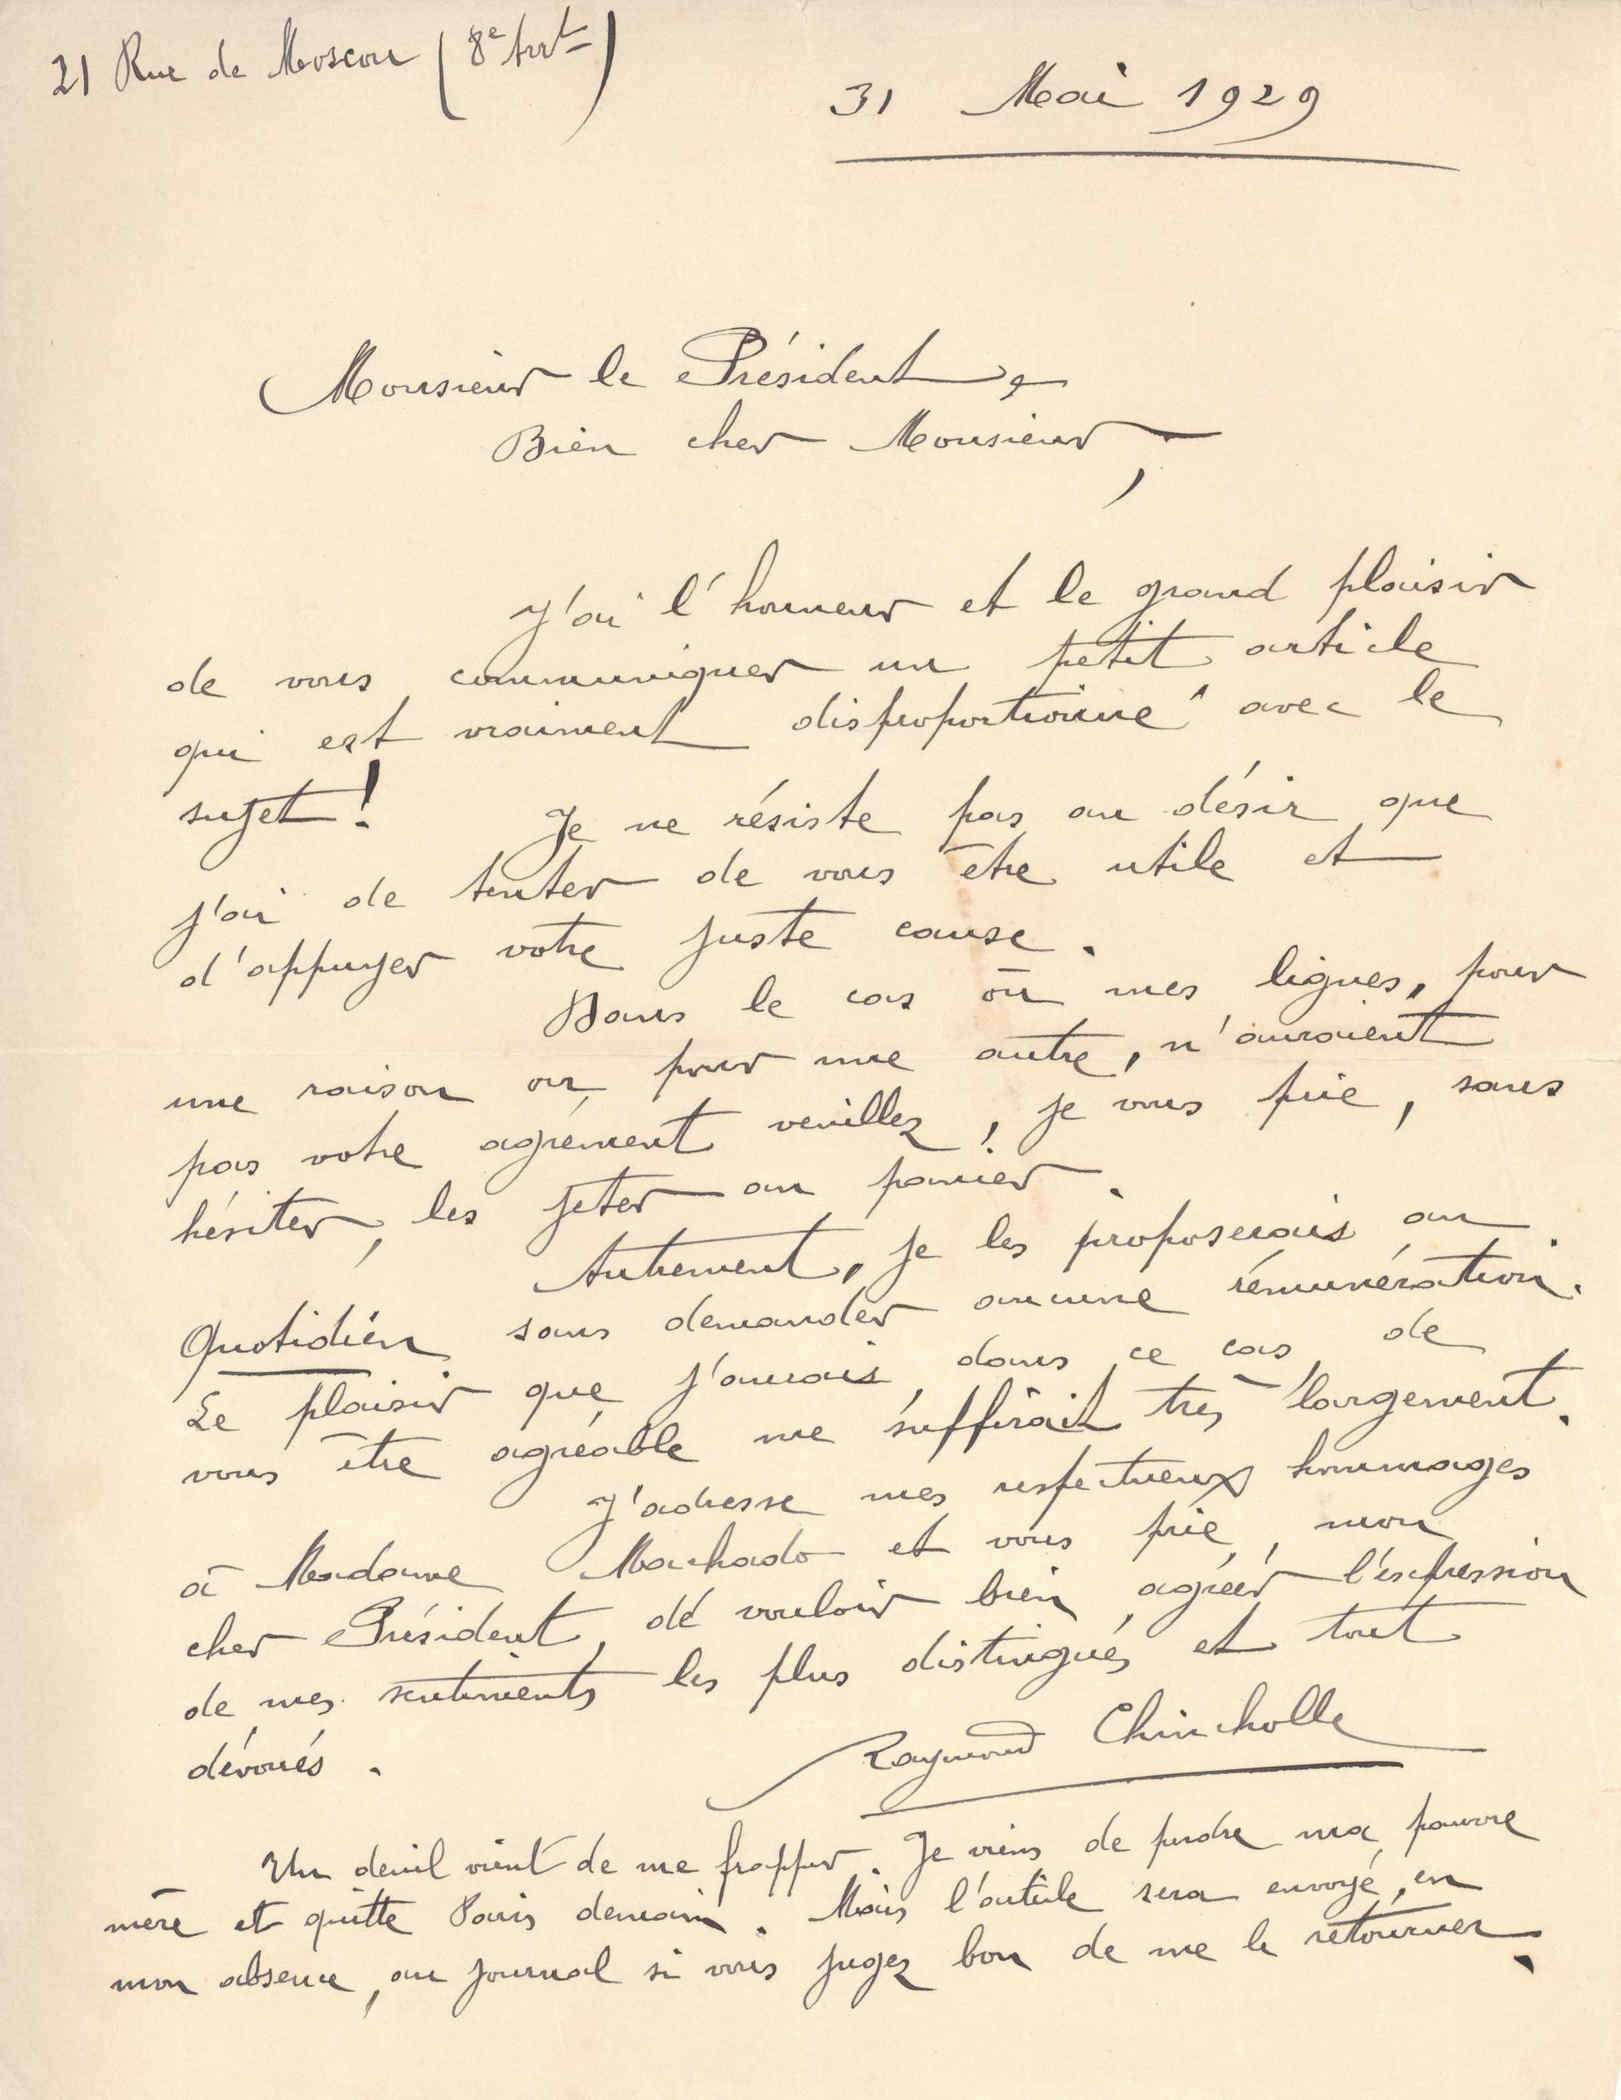 21 Rue de Moscou (8e Arrt)
31 Mai 1929
Monsieur le Président,
Bien cher Monsieur,
J'ai l'honneur et le grand plaisir
de vous communiquer un petit article
qui est vraiment disproportionné avec le
sujet!
Je ne résiste pas au désir que
j'ai de tenter de vous être utile et
d'appuyer votre juste cause.
Dans le cas où mes lignes, pour
une raison ou pour une autre, n'auraient
pas votre agrément veuillez, je vous prie, sans
hésiter, les jeter au panier.
Autrement, je les proposerais au
Quotidien sans demander aucune rémunération.
Le plaisir que j'aurais, dans ce cas, de
vous être agréable me suffirait très largement.
J'adresse mes respectueux hommages
à Madame Machado et vous prie, mon
cher Président, de vouloir bien agréer l'expression
de mes sentiments les plus distingués et tout
dévoués.
Raymond Chincholle
Un deuil vient de me frapper. Je viens de perdre ma pauvre
mère et quitte Paris demain. Mais l'article sera envoyé, en
mon absence, au journal si vous jugez bon de me le retourner.